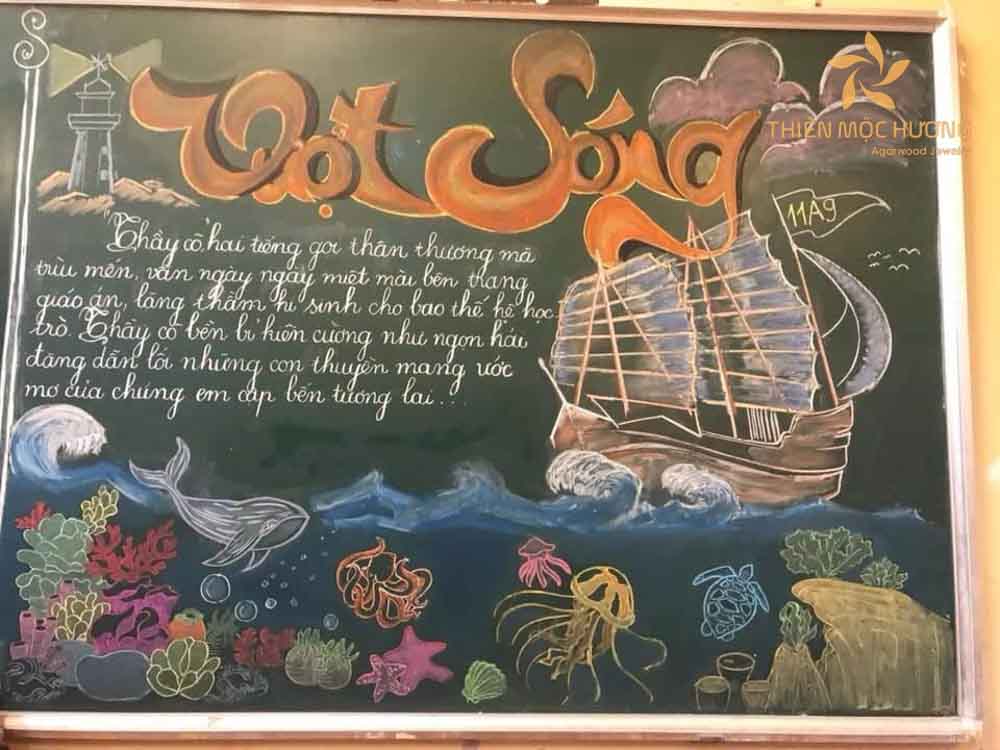 Vượt Sóng
THIÊN MỘC HƯƠNG
Agarwood Jewelry
11A9
Thầy cô hai tiếng gọi thân thương mà
trìu mến, vẫn ngày ngày miệt mài bên trang
giáo án, lặng thầm hi sinh cho bao thế hệ học
trò. Thầy cô bền bỉ kiên cường như ngọn hải
đăng dẫn lối những con thuyền mang ước
mơ của chúng em cập bến tương lai...